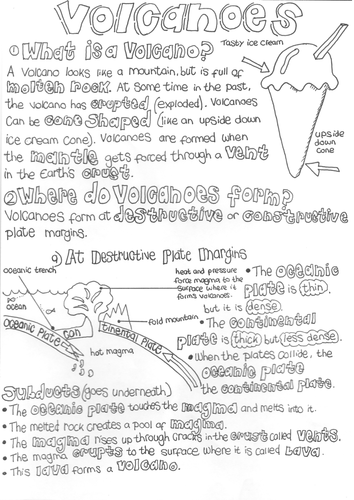 Volcanoes
① What is a Volcano?
Tasty ice cream
A Volcano looks like a mountain, but is full of
molten rock. At some time in the past,
the volcano has erupted (exploded). Volcanoes
Can be Cone Shaped (like an upside down
ice cream Cone). Volcanoes are formed when
the mantle gets forced through a vent
in the Earth's crust.
upside
down
cone
② Where do Volcanoes form?
Volcanoes form at destructive or constructive
plate margins.
a) At Destructive Plate Margins
oceanic trench
ocean
Oceanic Plate
heat and pressure
force magma to the
surface where it
forms volcanoes.
fold mountain
Con
tinental Plate
hot magma
• The oceanic
plate is thin,
but it is dense.
• The Continental
Plate is thick but less dense.
• When the plates collide, the
oceanic plate
Subducts (goes underneath)
the continental plate.
• The oceanic plate touches the magma and melts into it.
• The melted rock creates a pool of magma.
• The magma rises up through cracks in the crust called vents.
• The magma erupts to the surface where it is called lava.
• This lava forms a volcano.